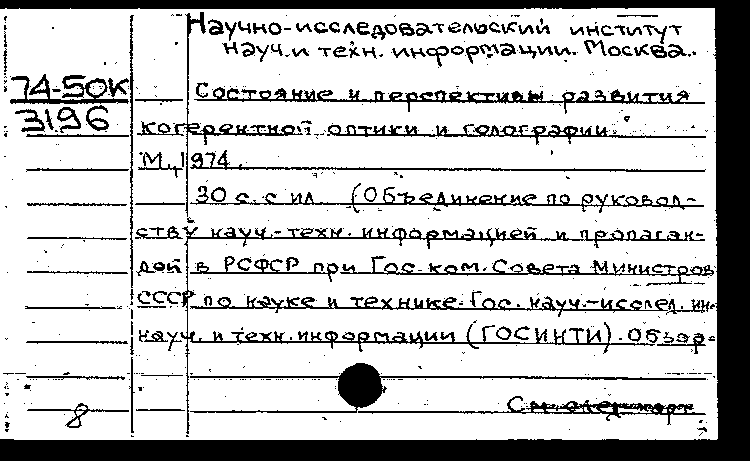 Научно-исследовательский институт
науч. и техн. информации. Москва.
74-50К
3196
Состояние и перспективы развития
когерентной оптики и голографии.
М., 1974.
30 с. с ил. (Объединение по руковод-
ству науч.-техн. информацией и пропаган-
дой в РСФСР при Гос. ком. Совета Министров
СССР по науке и технике. Гос. науч.-исслед. ин-
науч. и техн. информации (ГОСИНТИ). Обзор-
См. след. карт.
8